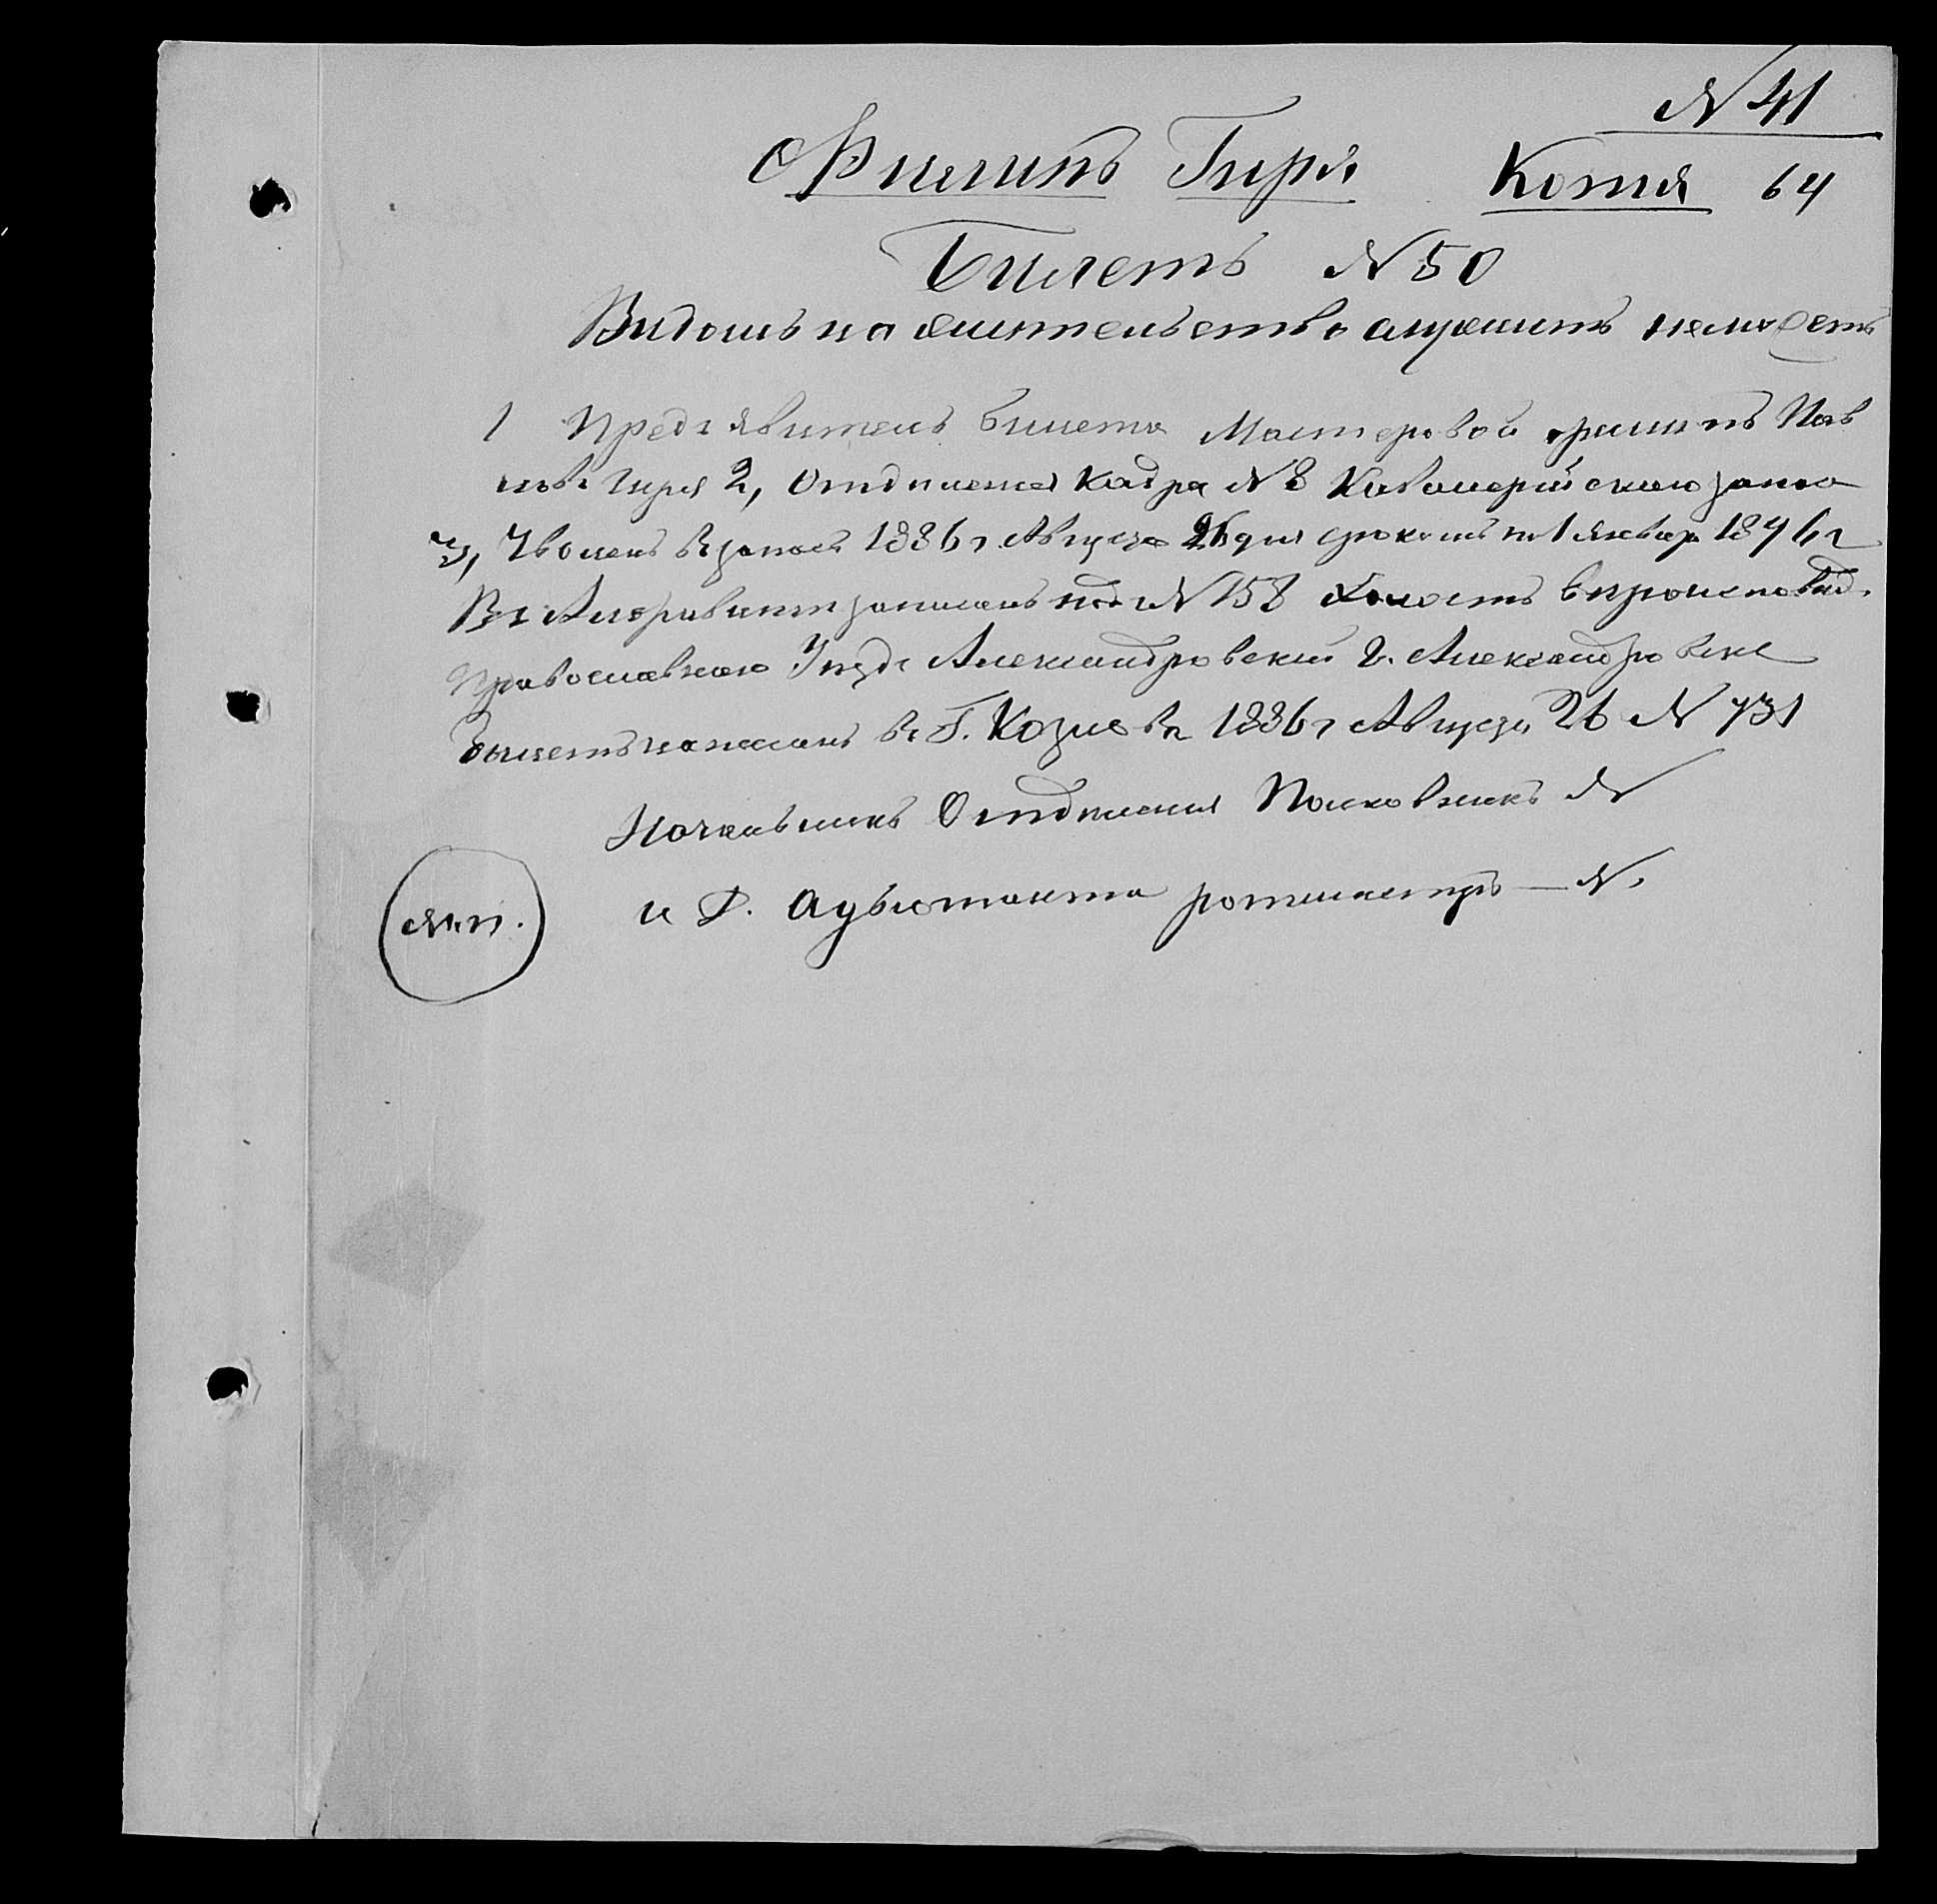 № 41
Филипъ Гиря Копія 64
Билетъ № 50
Видомъ на жительство служить не можетъ
1 Предъявитель билета Мастеровой Филипъ Пав
ловъ Гиря 2, Отдѣленія Кадра № 8 Кавалерійскаго запаса
3, Уволенъ въ запасъ 1886 г. Августа 26 дня срокомъ по 1 Января 1896 г
Въ Алфавитѣ записанъ подъ № 158 Холостъ вѣроисповѣд.
Православнаго Уѣздъ Александровскій г. Александровскъ
Билетъ написанъ въ Г. Козловѣ 1886 г Августа 26 № 731
Начальникъ Отдѣленія Полковникъ N
и д. Адъютанта ротмистръ — N.
М.П.